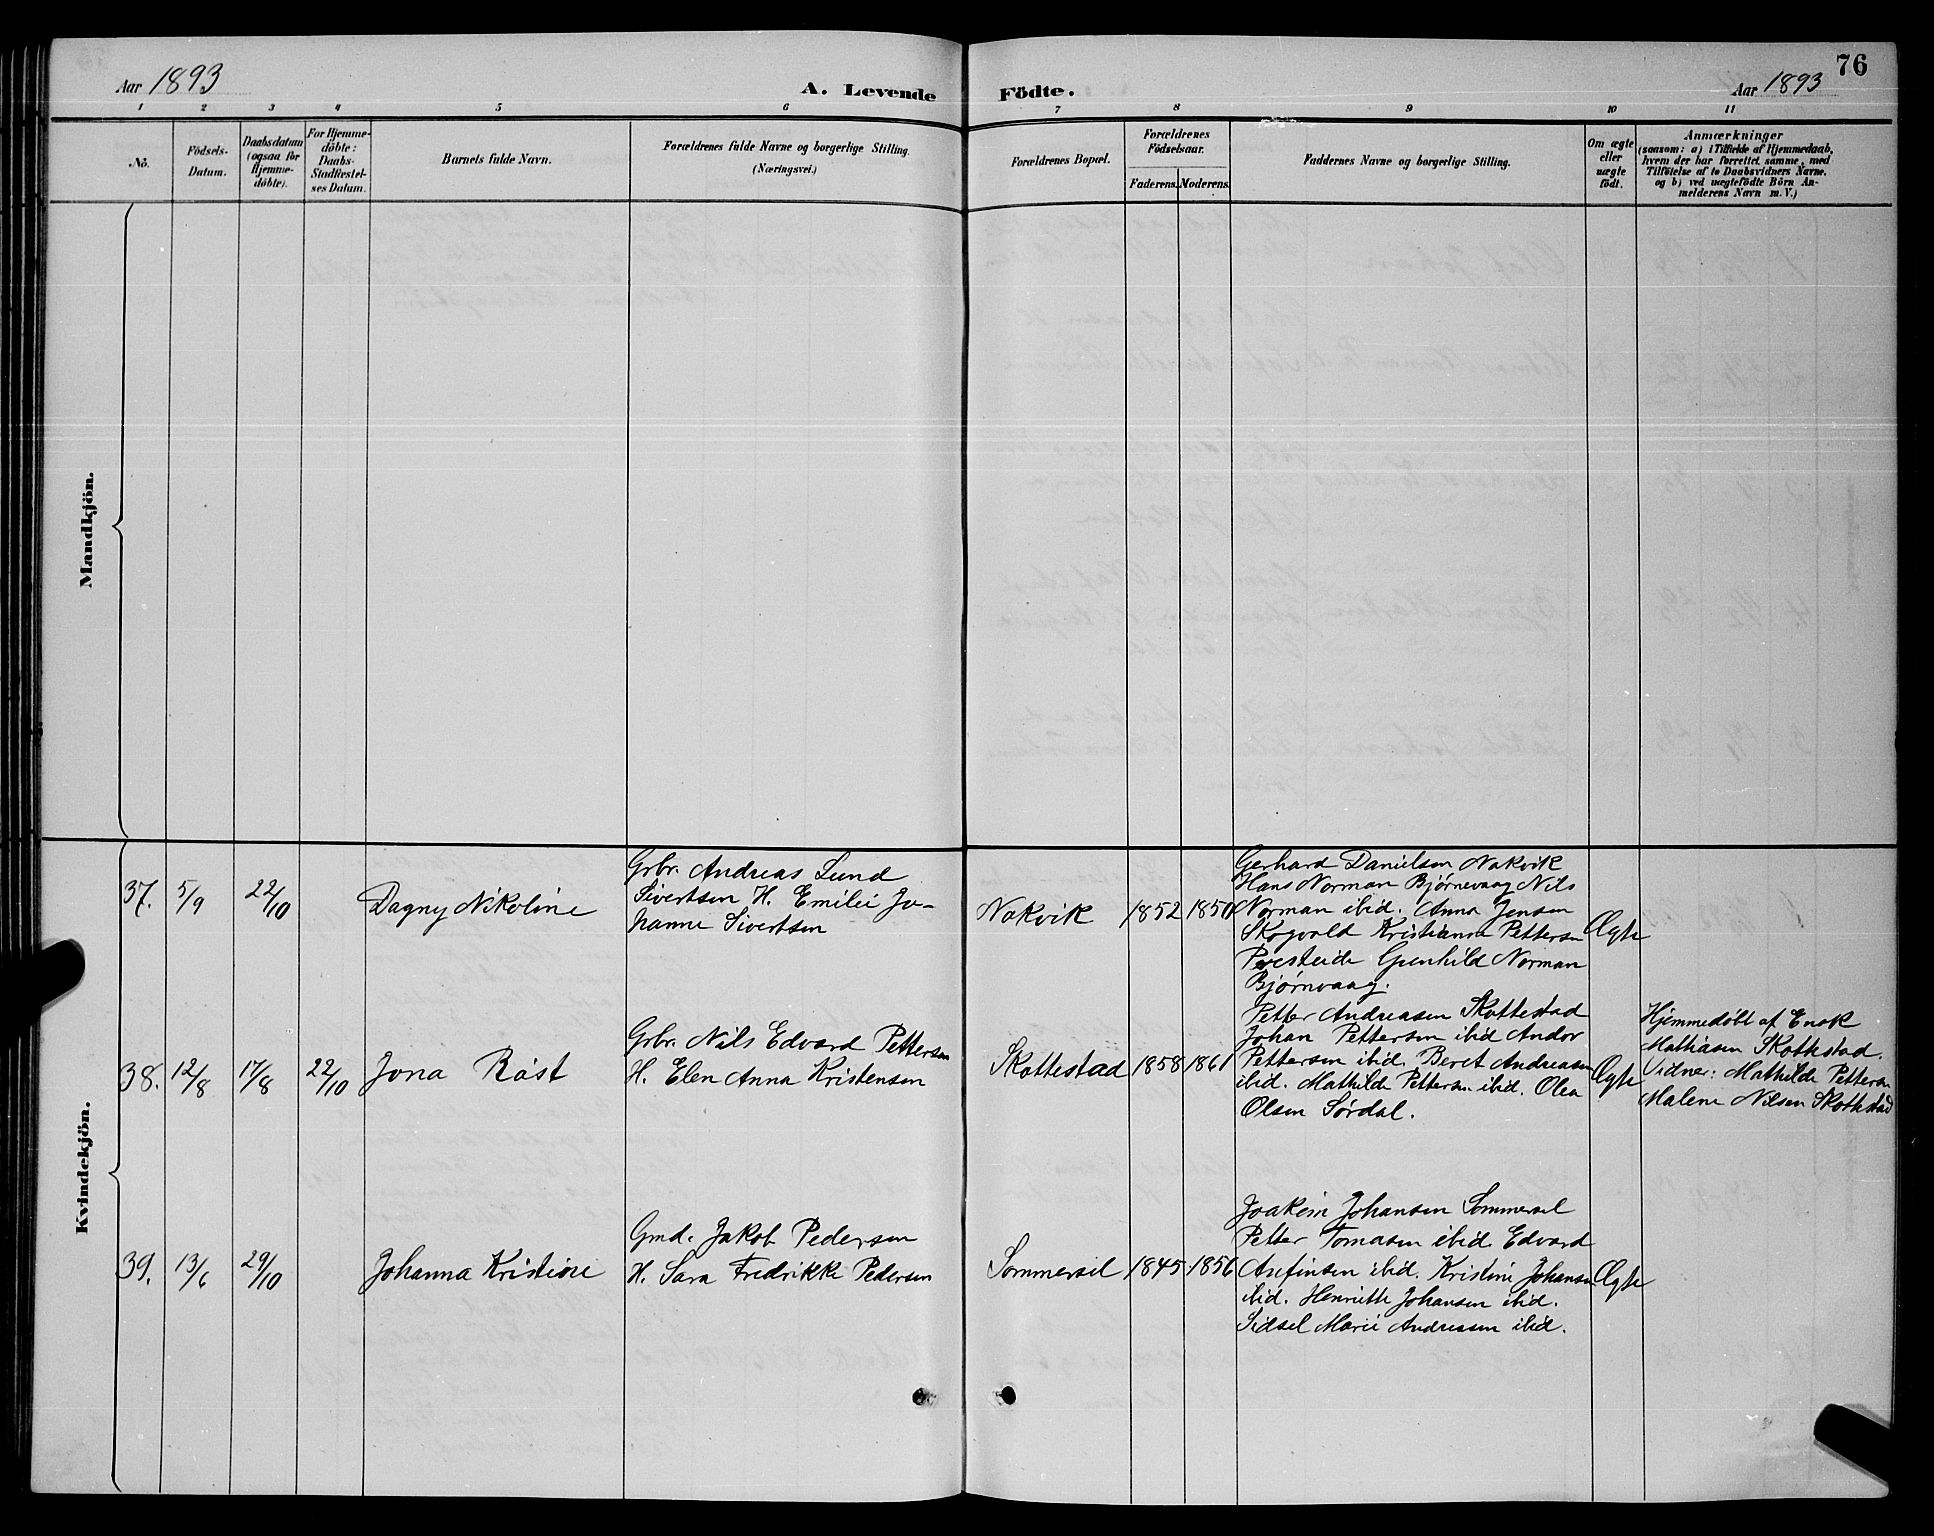 Aar 1893
A. Levende
Födte.
Aar 1893
76
1 2 3 4 5 6 7 8 9 10 11
No.
Födsels-
Datum.
Daabsdatum
(ogsaa for
Hjemme-
döbte).
For Hjemme-
döbte:
Daabs-
Stadfæstel-
ses Datum.
Barnets fulde Navn.
Forældrenes fulde Navne og borgerlige Stilling.
(Næringsvei.)
Forældrenes Bopæl.
Forældrenes
Födselsaar.
Faderens. Moderens.
Faddernes Navne og borgerlige Stilling.
Om ægte
eller
uægte
födt.
Anmærkninger
(saasom: a) i Tilfælde af Hjemmedaab,
hvem der har forrettet samme, med
Tilföielse af to Daabsvidners Navne,
og b) ved uægtefödte Börn An-
melderens Navn m. V.)
Mandkjön.
Kvindekjön.
37. 5/9 22/10
Dagny Nikoline
Grbr. Andreas Lund
Sivertsen H. Emilie Jo-
hanne Sivertsen
Nakvik 1852 1850
Gerhard Danielsen Nakvik
Hans Norman Bjørnevaag Nils
Norman ibid. Anna Jensen
Skogvold Kristianna Pettersn
Presteide Gunhild Norman
Bjørnvaag.
Ægte
38. 12/8 17/8 22/10
Jona Røst
Grbr. Nils Edvard Pettersen
H. Elen Anna Kristensen
Skottestad 1858 1861
Petter Andreasen Skottestad
Johan Pettersen ibid Andor
Pettersen ibid. Beret Andreasen
ibid. Mathilde Pettersn ibid. Olea
Olsen Sørdal.
Ægte
Hjemmedøbt af Enok
Mathiasen Skottestad.
Vidner: Mathilde Pettersn
Malene Nilsen Skottestad
39. 13/6 29/10
Johanna Kristine
Gmd. Jakob Pedersen
H. Sara Fredrikke Pedersen
Sommersel 1845 1856
Joakim Johansen Sommersel
Petter Tomasen ibid. Edvard
Arefinsen ibid. Kristine Johansen
ibid. Henriette Johansen ibid.
Sidsel Marie Andreasen ibid.
Ægte